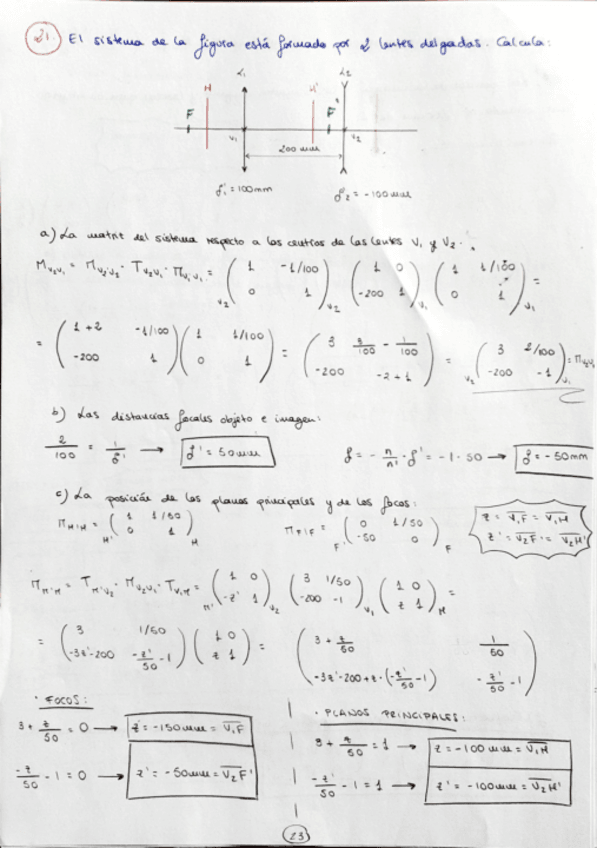 21. El sistema de la figura está formado por 2 lentes delgadas. Calcula:
L₁ L₂
H H'
F F'
V₁ V₂
200 mm
f₁' = 100mm f₂' = -100mm
a) La matriz del sistema respecto a los centros de las lentes V₁ y V₂.
M_V₂V₁ = M_V₂'V₂ · T_V₂V₁ · M_V₁'V₁ = V₂ ( 1 -1/100 ; 0 1 ) V₂ ( 1 0 ; -200 1 ) V₁ ( 1 1/100 ; 0 1 ) V₁ =
= ( 1+2 -1/100 ; -200 1 ) ( 1 1/100 ; 0 1 ) = ( 3 3/100 - 1/100 ; -200 -2+1 ) = V₂ ( 3 2/100 ; -200 -1 ) V₁ = M_V₂V₁
b) Las distancias focales objeto e imagen:
2/100 = 1/f' → f' = 50mm f = - n/n' · f' = -1 · 50 → f = -50mm
c) La posición de los planos principales y de los focos:
M_H'H = H' ( 1 1/50 ; 0 1 ) H M_F'F = F' ( 0 1/50 ; -50 0 ) F z = V₁F = V₁H
z' = V₂F' = V₂H'
M_H'H = T_H'V₂ · M_V₂V₁ · T_V₁H = H' ( 1 0 ; -z' 1 ) V₂ ( 3 1/50 ; -200 -1 ) V₁ ( 1 0 ; z 1 ) H =
= ( 3 1/50 ; -3z'-200 -z'/50 -1 ) ( 1 0 ; z 1 ) = ( 3 + z/50 1/50 ; -3z'-200+z·(-z'/50 -1) -z'/50 -1 )
· FOCOS:
3 + z/50 = 0 → z = -150mm = V₁F
-z'/50 - 1 = 0 → z' = -50mm = V₂F'
· PLANOS PRINCIPALES:
3 + z/50 = 1 → z = -100mm = V₁H
-z'/50 - 1 = 1 → z' = -100mm = V₂H'
23